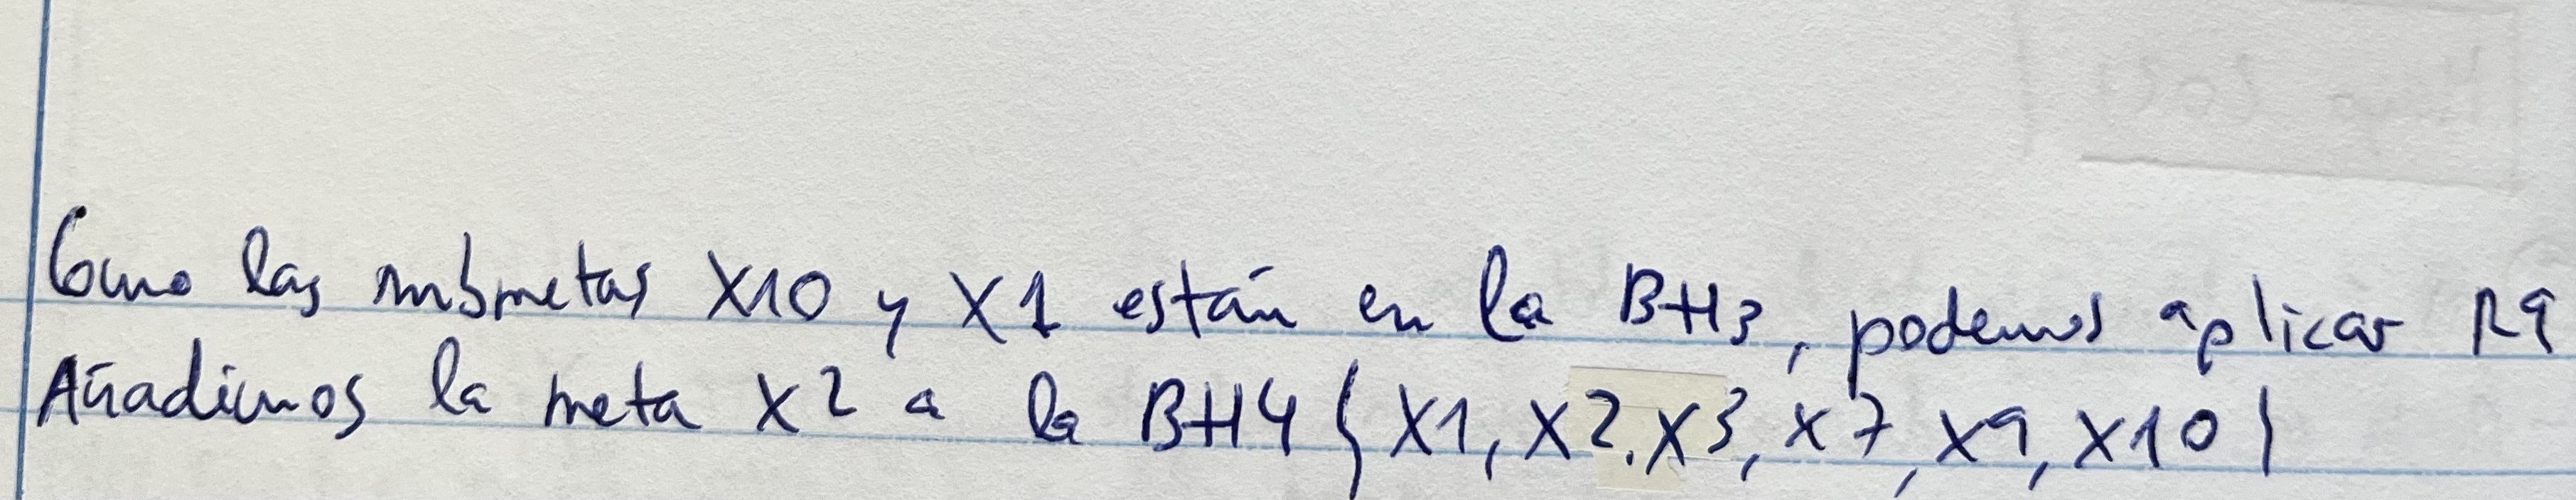 Como las submetas X10 y X1 están en la BH3, podemos aplicar R9
Añadimos la meta X2 a la BH4 {X1, X2, X3, X7, X9, X10}